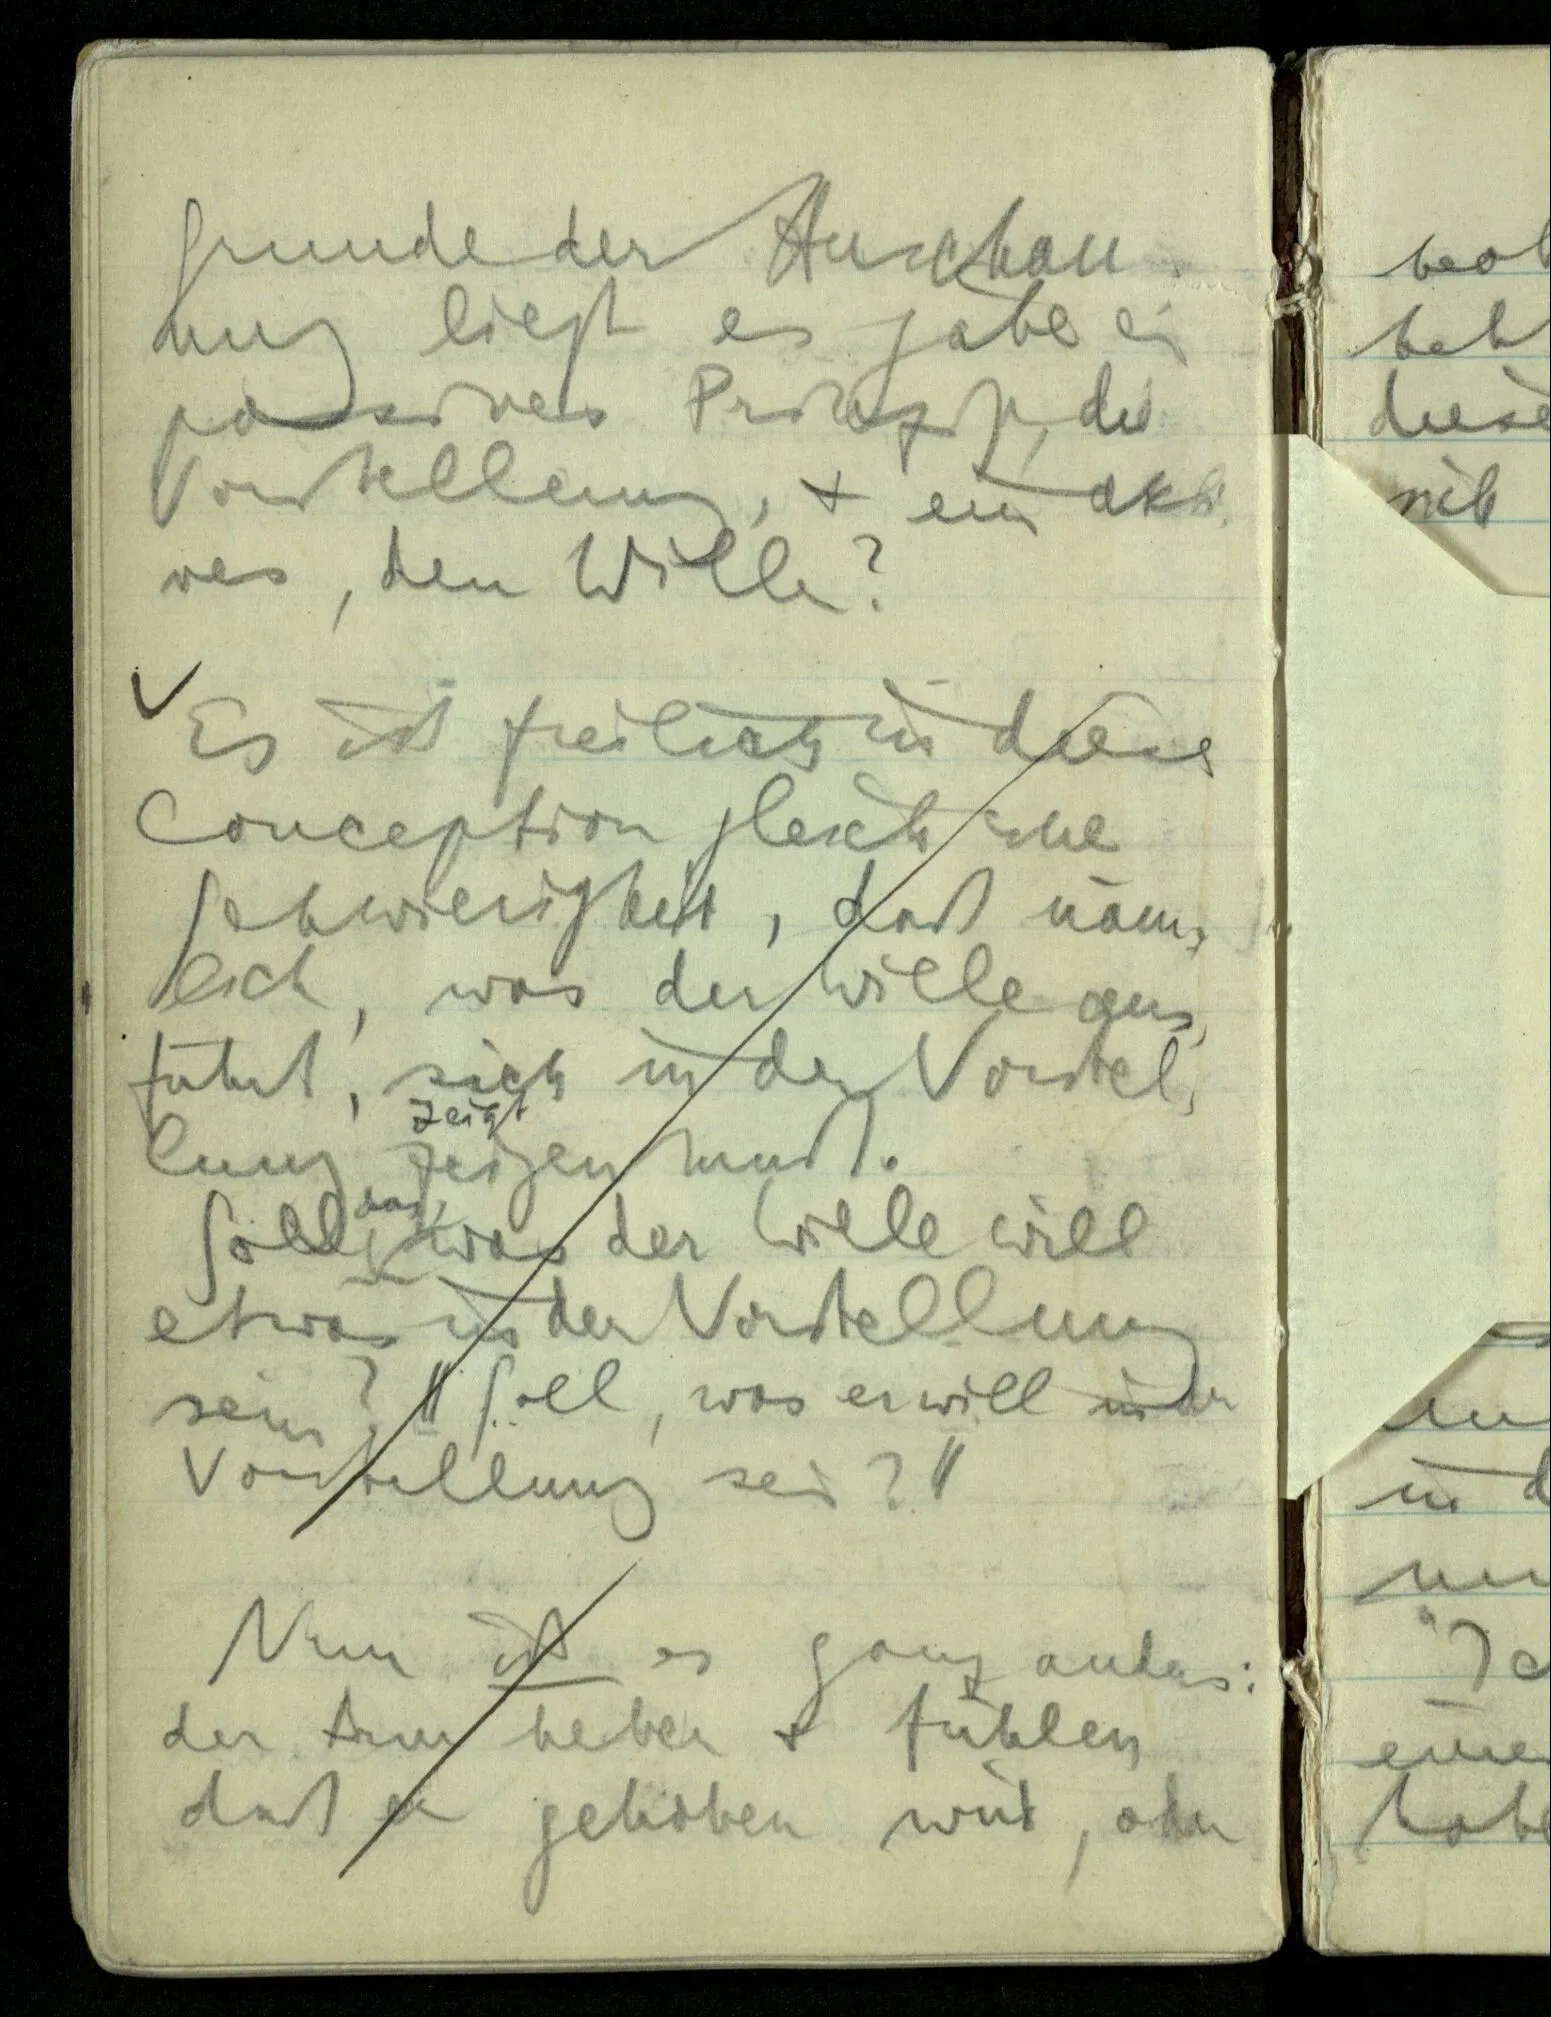 Grunde der Anschau
ung liegt es gäbe ein
passives Prinzip, die
Vorstellung, + ein akti
ves, den Wille?
Es ist freilich in diese
Conception gleich eine
Schwierigkeit, daß näm
lich, was der Wille aus
führt, sich in der Vorstel
zeigt
lung zeigen muß.
das,
Soll, was der Wille will
etwas in der Vorstellung
sein? // Soll, was er will in der
Vorstellung sein? //
Nun ist es ganz anders:
den Arm heben + fühlen
daß er gehoben wird, oder
beob
beh
diese
mit
in d
"Ic
eine
habe